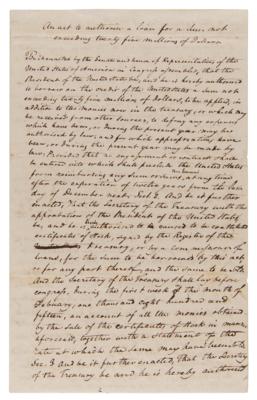 An act to authorize a loan for a sum not
exceeding twenty five millions of dollars
Be it enacted by the Senate and house of Representatives of the
United States of America in Congress assembled, that the
President of the United States be, and he is hereby authorized
to borrow on the credit of the United States a sum not
exceeding twenty five millions of dollars, to be applied, in
addition to the monies now in the treasury, or which may
be received from other sources, to defray any expences
which have been, or during the present year may be
authorised by law, and for which appropriations have
been, or during the present year may be made by
law: Provided that no engagement or contract shall
be entered into which shall preclude the United States
from reimbursing any sum or sums at any time
after the expiration of twelve years from the last
day of December next. Sect 2. And be it further
enacted, that the Secretary of the Treasury with the
approbation of the President of the United States
be, and he is authorized to be caused to be constituted
certificates of stock, signed by the Register of the
Treasury, or by a commissioner of
loans, for the sum to be borrowed by this act
or for any part thereof, and the same to be sold.
And the Secretary of the Treasury shall lay before
congress, during the first week of the month of
February, one thousand and eight hundred and
fifteen, an account of all the monies obtained
by the sale of the certificates of stock in manner
aforesaid, together with a statement of the
rate at which the same may have been sold.
Sec. 3 and be it further enacted, That the Secretary
of the Treasury be and he is hereby authorized